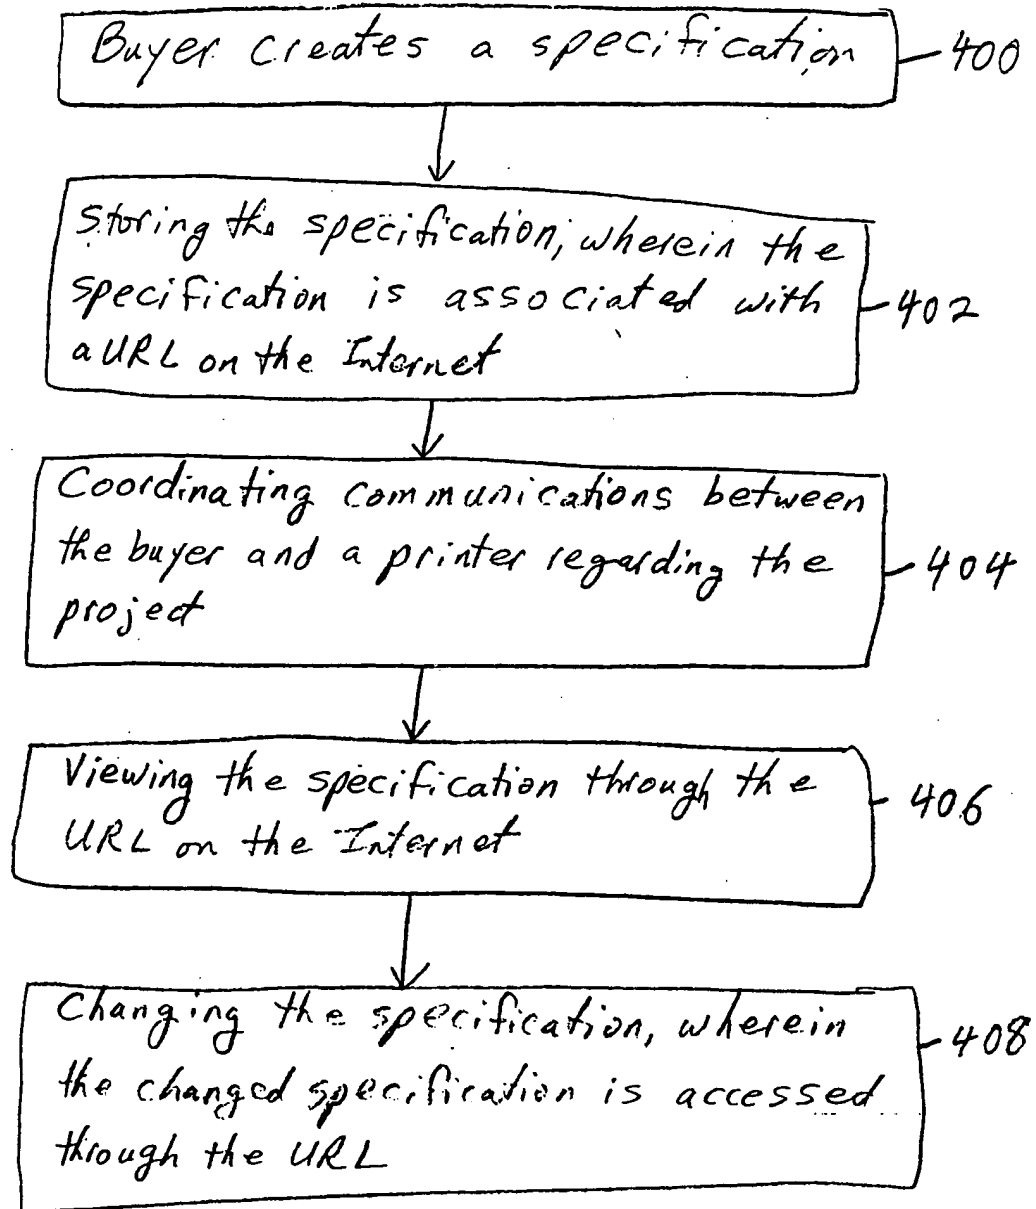 Buyer creates a specification 400
Storing the specification, wherein the
specification is associated with 402
a URL on the Internet
Coordinating communications between
the buyer and a printer regarding the 404
project
Viewing the specification through the 406
URL on the Internet
Changing the specification, wherein 408
the changed specification is accessed
through the URL